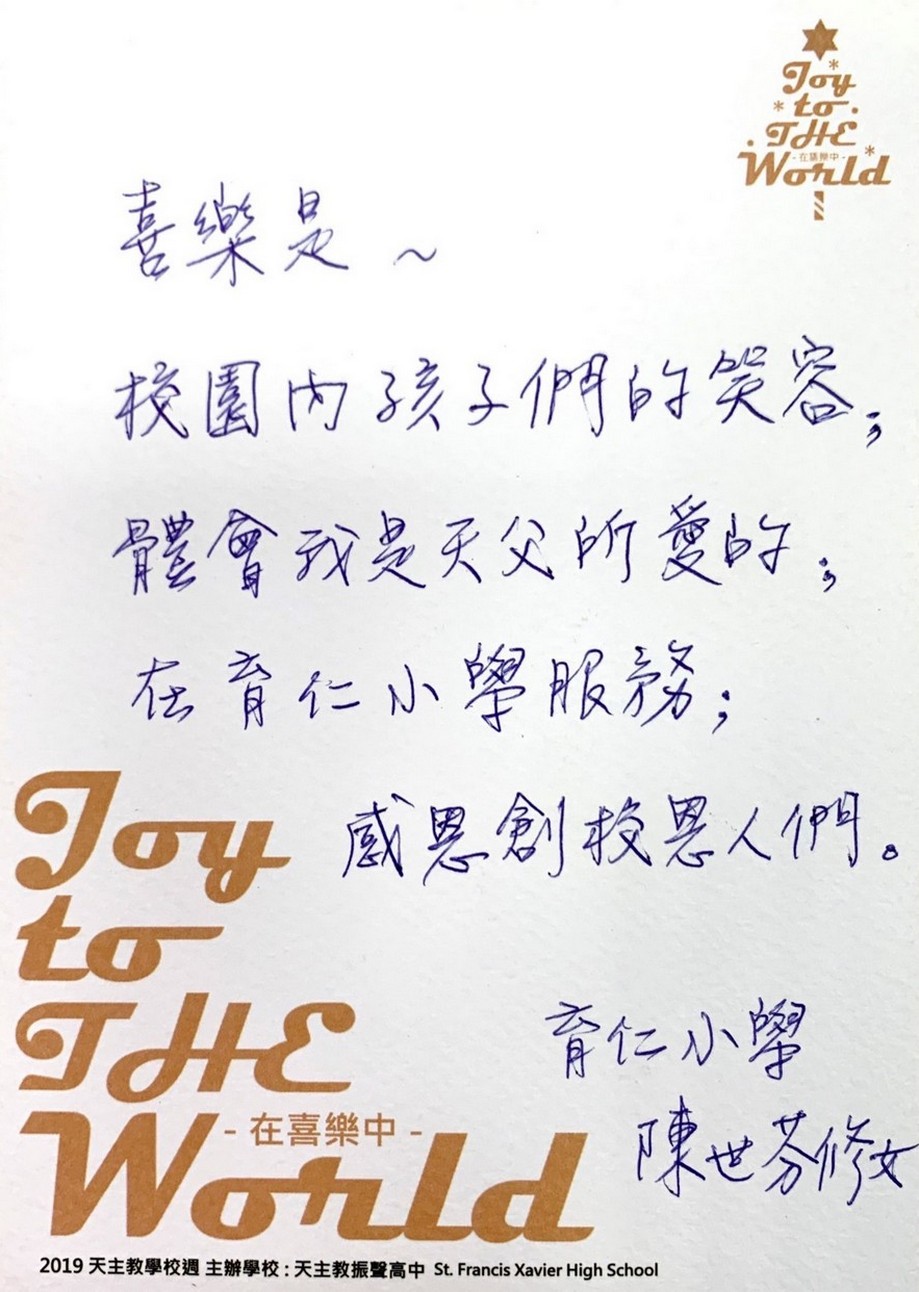 Joy
to
THE
- 在喜樂中 -
World
喜樂是～
校園內孩子們的笑容；
體會我是天父所愛的；
在育仁小學服務；
感恩創校恩人們。
育仁小學
陳世芬修女
Joy
to
THE
- 在喜樂中 -
World
2019 天主教學校週 主辦學校 : 天主教振聲高中 St. Francis Xavier High School